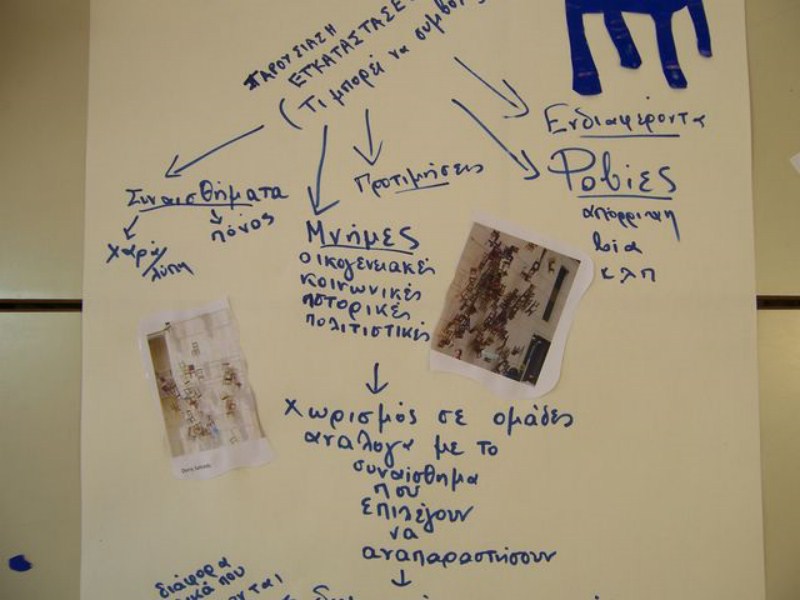 ΠΑΡΟΥΣΙΑΣΗ
ΕΓΚΑΤΑΣΤΑΣΕ
(Τι μπορεί να συμβολ
Ενδιαφέροντα
Φοβίες
απόρριψη
βία
κλπ
Προτιμήσεις
Συναισθήματα
χαρά/
λύπη
πόνος
Μνήμες
οικογενειακές
κοινωνικές
ιστορικές
πολιτιστικές
Χωρισμός σε ομάδες
ανάλογα με το
συναίσθημα
που
επιλέγουν
να
αναπαραστήσουν
διάφορα